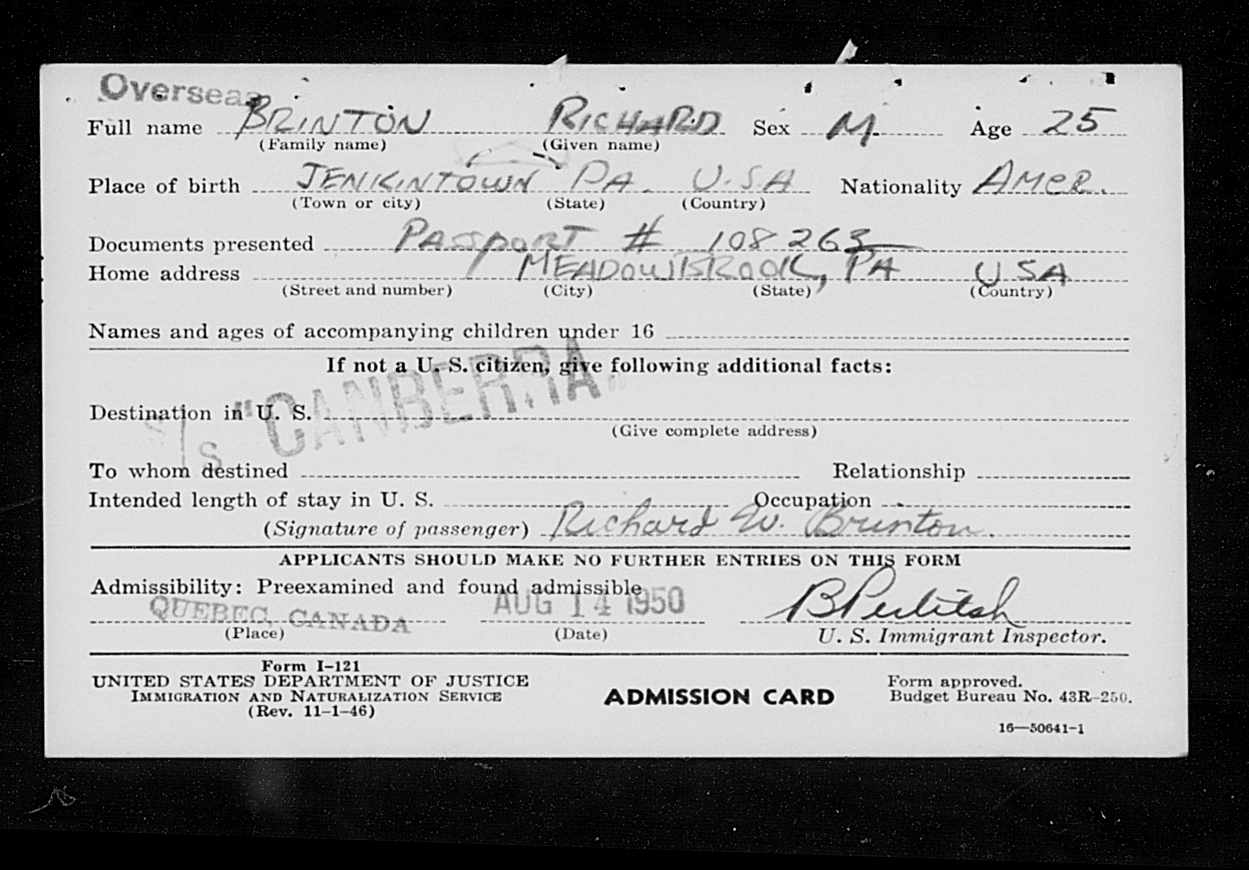 Overseas
Full name BRINTON RICHARD Sex M. Age 25
(Family name) (Given name)
Place of birth JENKINTOWN PA. U.S.A Nationality AMER.
(Town or city) (State) (Country)
Documents presented PASSPORT # 108263
Home address MEADOWBROOK, PA USA
(Street and number) (City) (State) (Country)
Names and ages of accompanying children under 16
If not a U. S. citizen, give following additional facts:
S/S "CANBERRA"
Destination in U. S.
(Give complete address)
To whom destined Relationship
Intended length of stay in U. S. Occupation
(Signature of passenger) Richard W. Brinton.
APPLICANTS SHOULD MAKE NO FURTHER ENTRIES ON THIS FORM
Admissibility: Preexamined and found admissible
QUEBEC, CANADA AUG 14 1950
(Place) (Date) U. S. Immigrant Inspector.
Form I-121
UNITED STATES DEPARTMENT OF JUSTICE
IMMIGRATION AND NATURALIZATION SERVICE
(Rev. 11-1-46)
ADMISSION CARD
Form approved.
Budget Bureau No. 43R-250.
16—50641-1